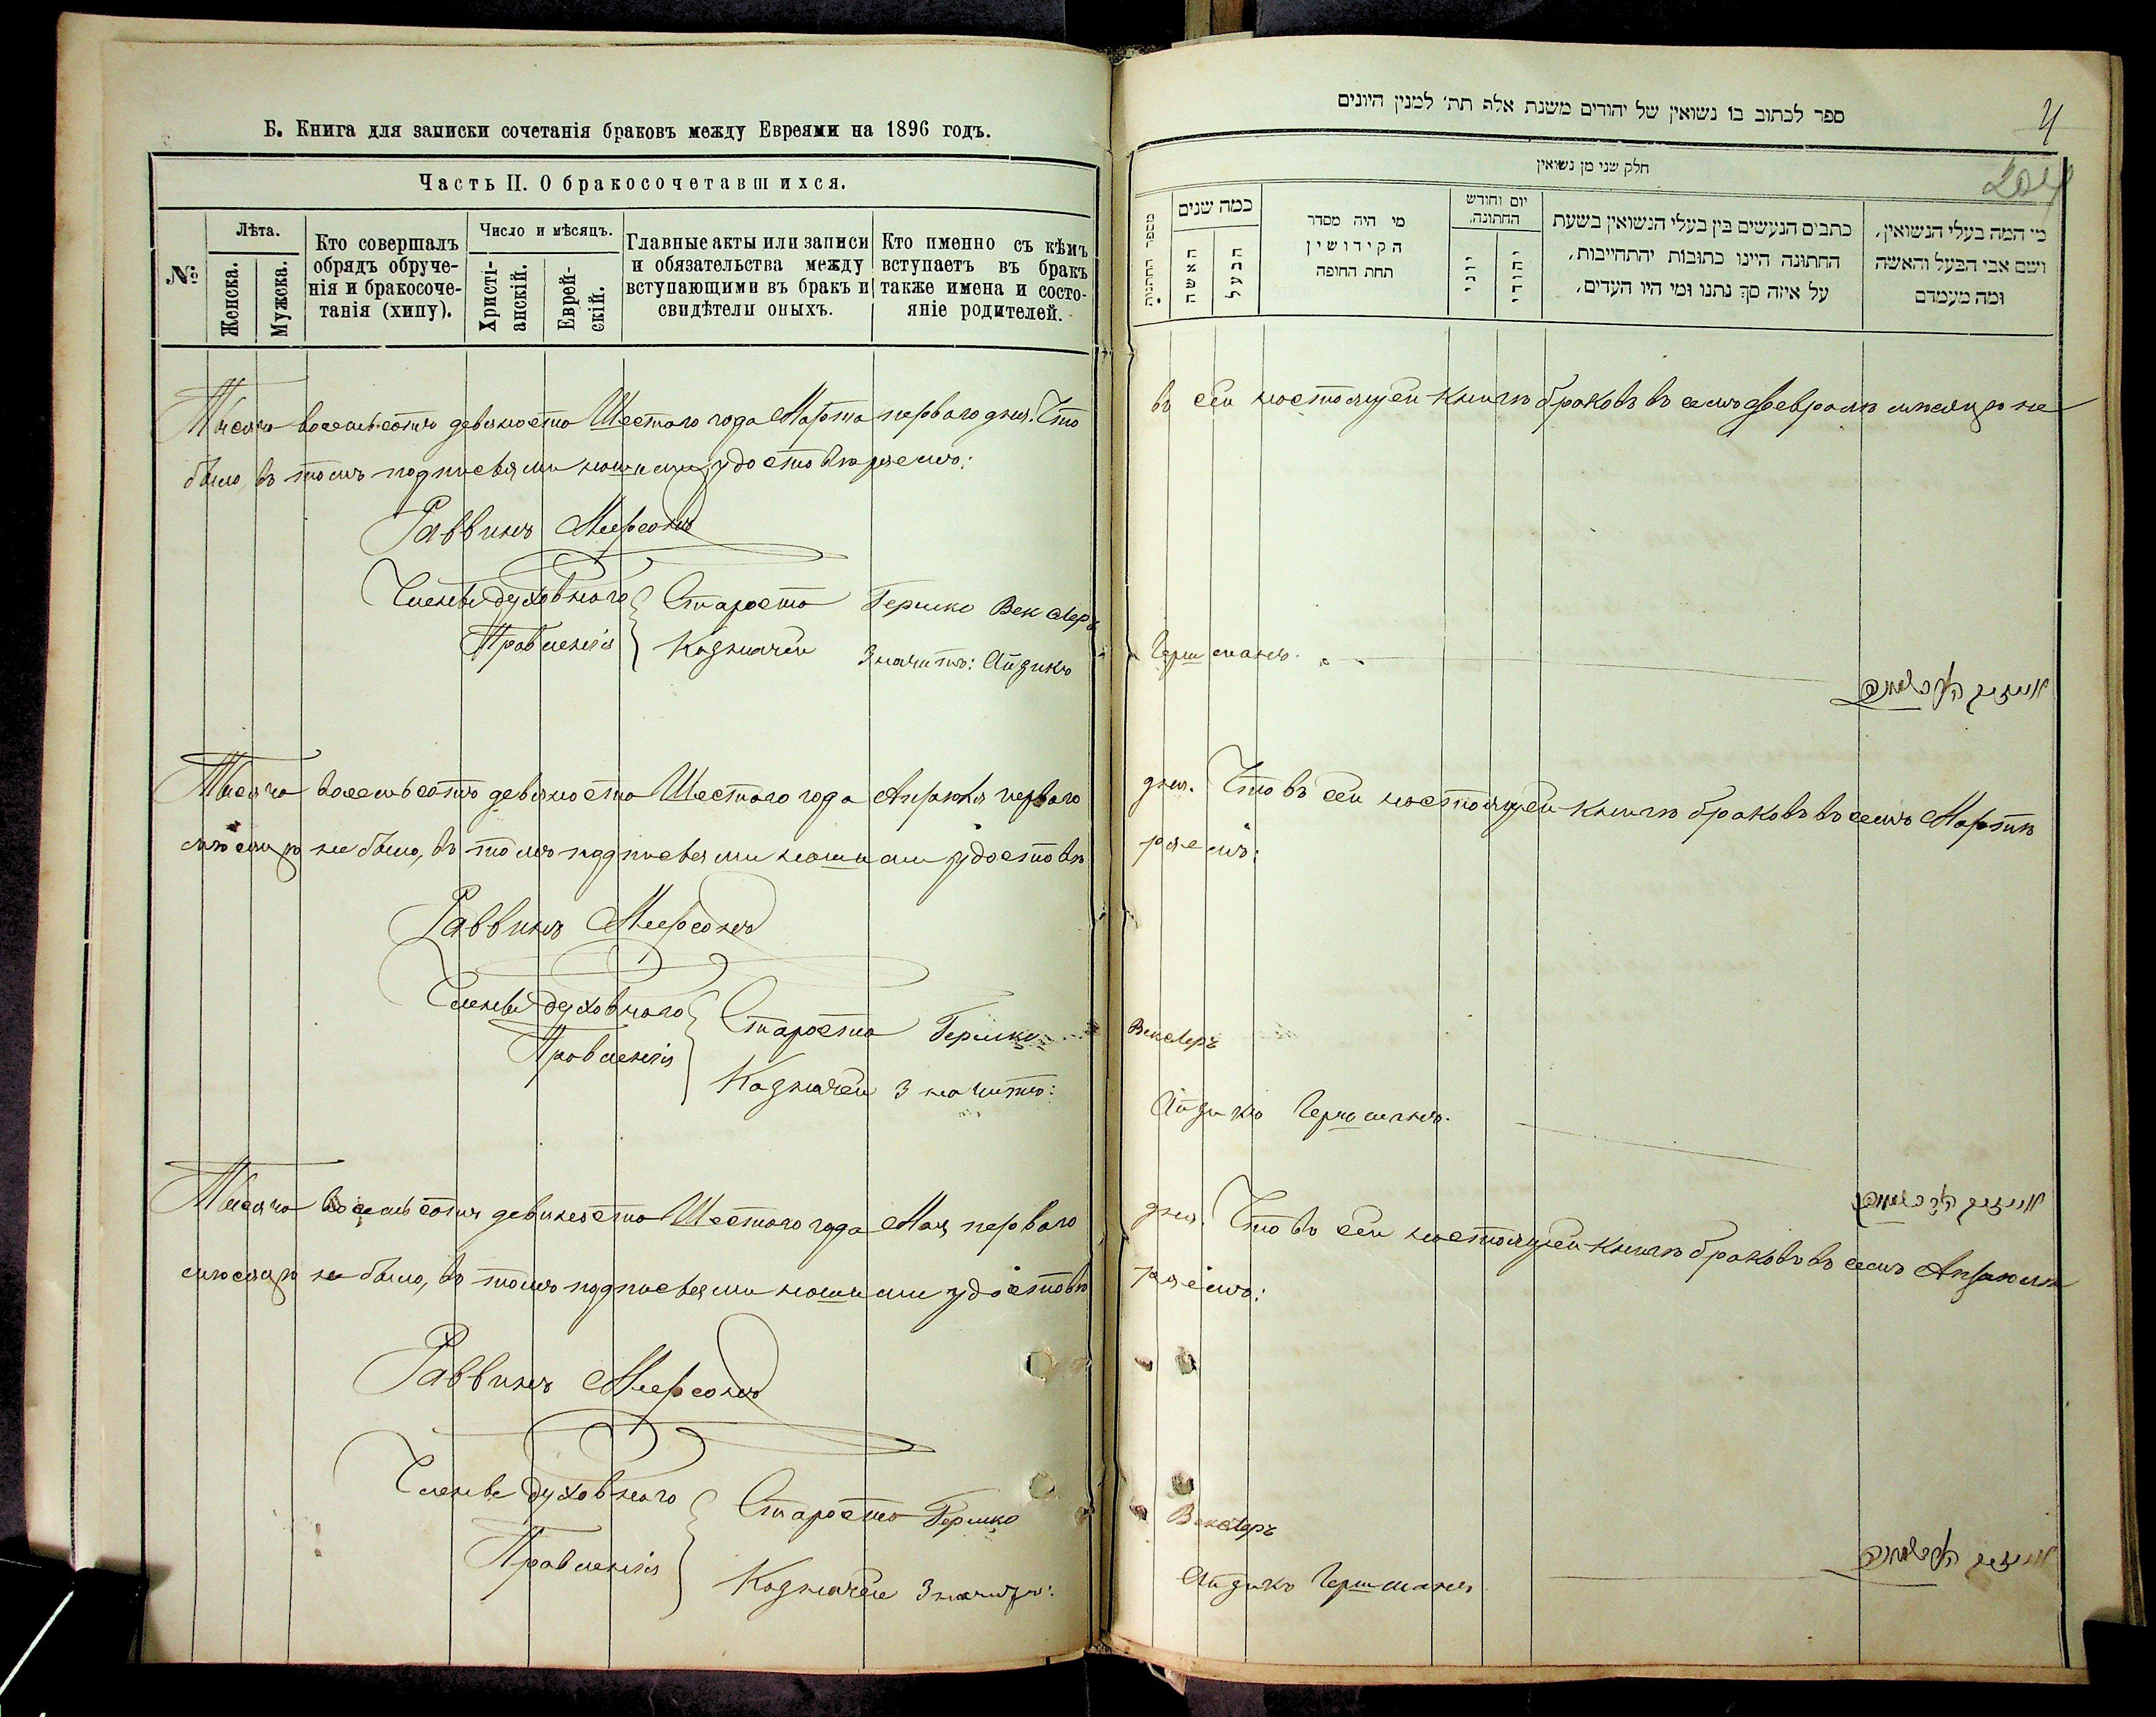 Б. Книга для записки сочетанія браковъ между Евреями на 1896 годъ.
Часть II. О бракосочетавшихся.
№
Лѣта.
Женска.
Мужска.
Кто совершалъ
обрядъ обруче-
нія и бракосоче-
танія (хипу).
Число и мѣсяцъ.
Христі-
анскій.
Еврей-
скій.
Главные акты или записи
и обязательства между
вступающими въ бракъ и
свидѣтели оныхъ.
Кто именно съ кѣмъ
вступаетъ въ бракъ
также имена и состо-
яніе родителей.
Тысяча восемьсотъ девяносто Шестого года Марта перваго дня. Что
было, въ томъ подписями нашими удостовѣряемъ:
Раввинъ Меерсонъ
Члены духовнаго
Правленія
Староста Гершко Векслеръ
Казначей Значитъ: Айзикъ
Тысяча восемьсотъ девяносто Шестого года Апрѣля перваго
мѣсяцѣ не было, въ томъ подписями нашими удостовѣ
Раввинъ Меерсонъ
Члены духовнаго
Правленія
Староста Гершко
Казначей Значитъ:
Тысяча восемьсотъ девяносто Шестого года Мая перваго
мѣсяцѣ не было, въ томъ подписями нашими удостовѣ
Раввинъ Меерсонъ
Члены духовнаго
Правленія
Староста Гершко
Казначей Значитъ:
ספר לכתוב בו נשואין של יהודים משנת אלף תת׳ למנין היונים
4
204
חלק שני מן נשואין
מספר החתונות
כמה שנים
האשה
הבעל
מי היה מסדר
הקידושין
תחת החופה
יום וחודש
החתונה.
יוני
יהודי
כתבים הנעשים בין בעלי הנשואין בשעת
החתונה היינו כתובות יהתחייבות,
על איזה סך נתנו ומי היו העדים,
מי המה בעלי הנשואין,
ושם אבי הבעל והאשה
ומה מעמדם
въ сей настоящей книгѣ браковъ въ семъ февралѣ мѣсяцѣ не
Гершманъ.
дня. Что въ сей настоящей книгѣ браковъ въ семъ Мартѣ
ряемъ:
Векслеръ
Айзикъ Гершманъ.
дня. Что въ сей настоящей книгѣ браковъ въ семъ Апрѣлѣ
ряемъ:
Векслеръ
Айзикъ Гершманъ